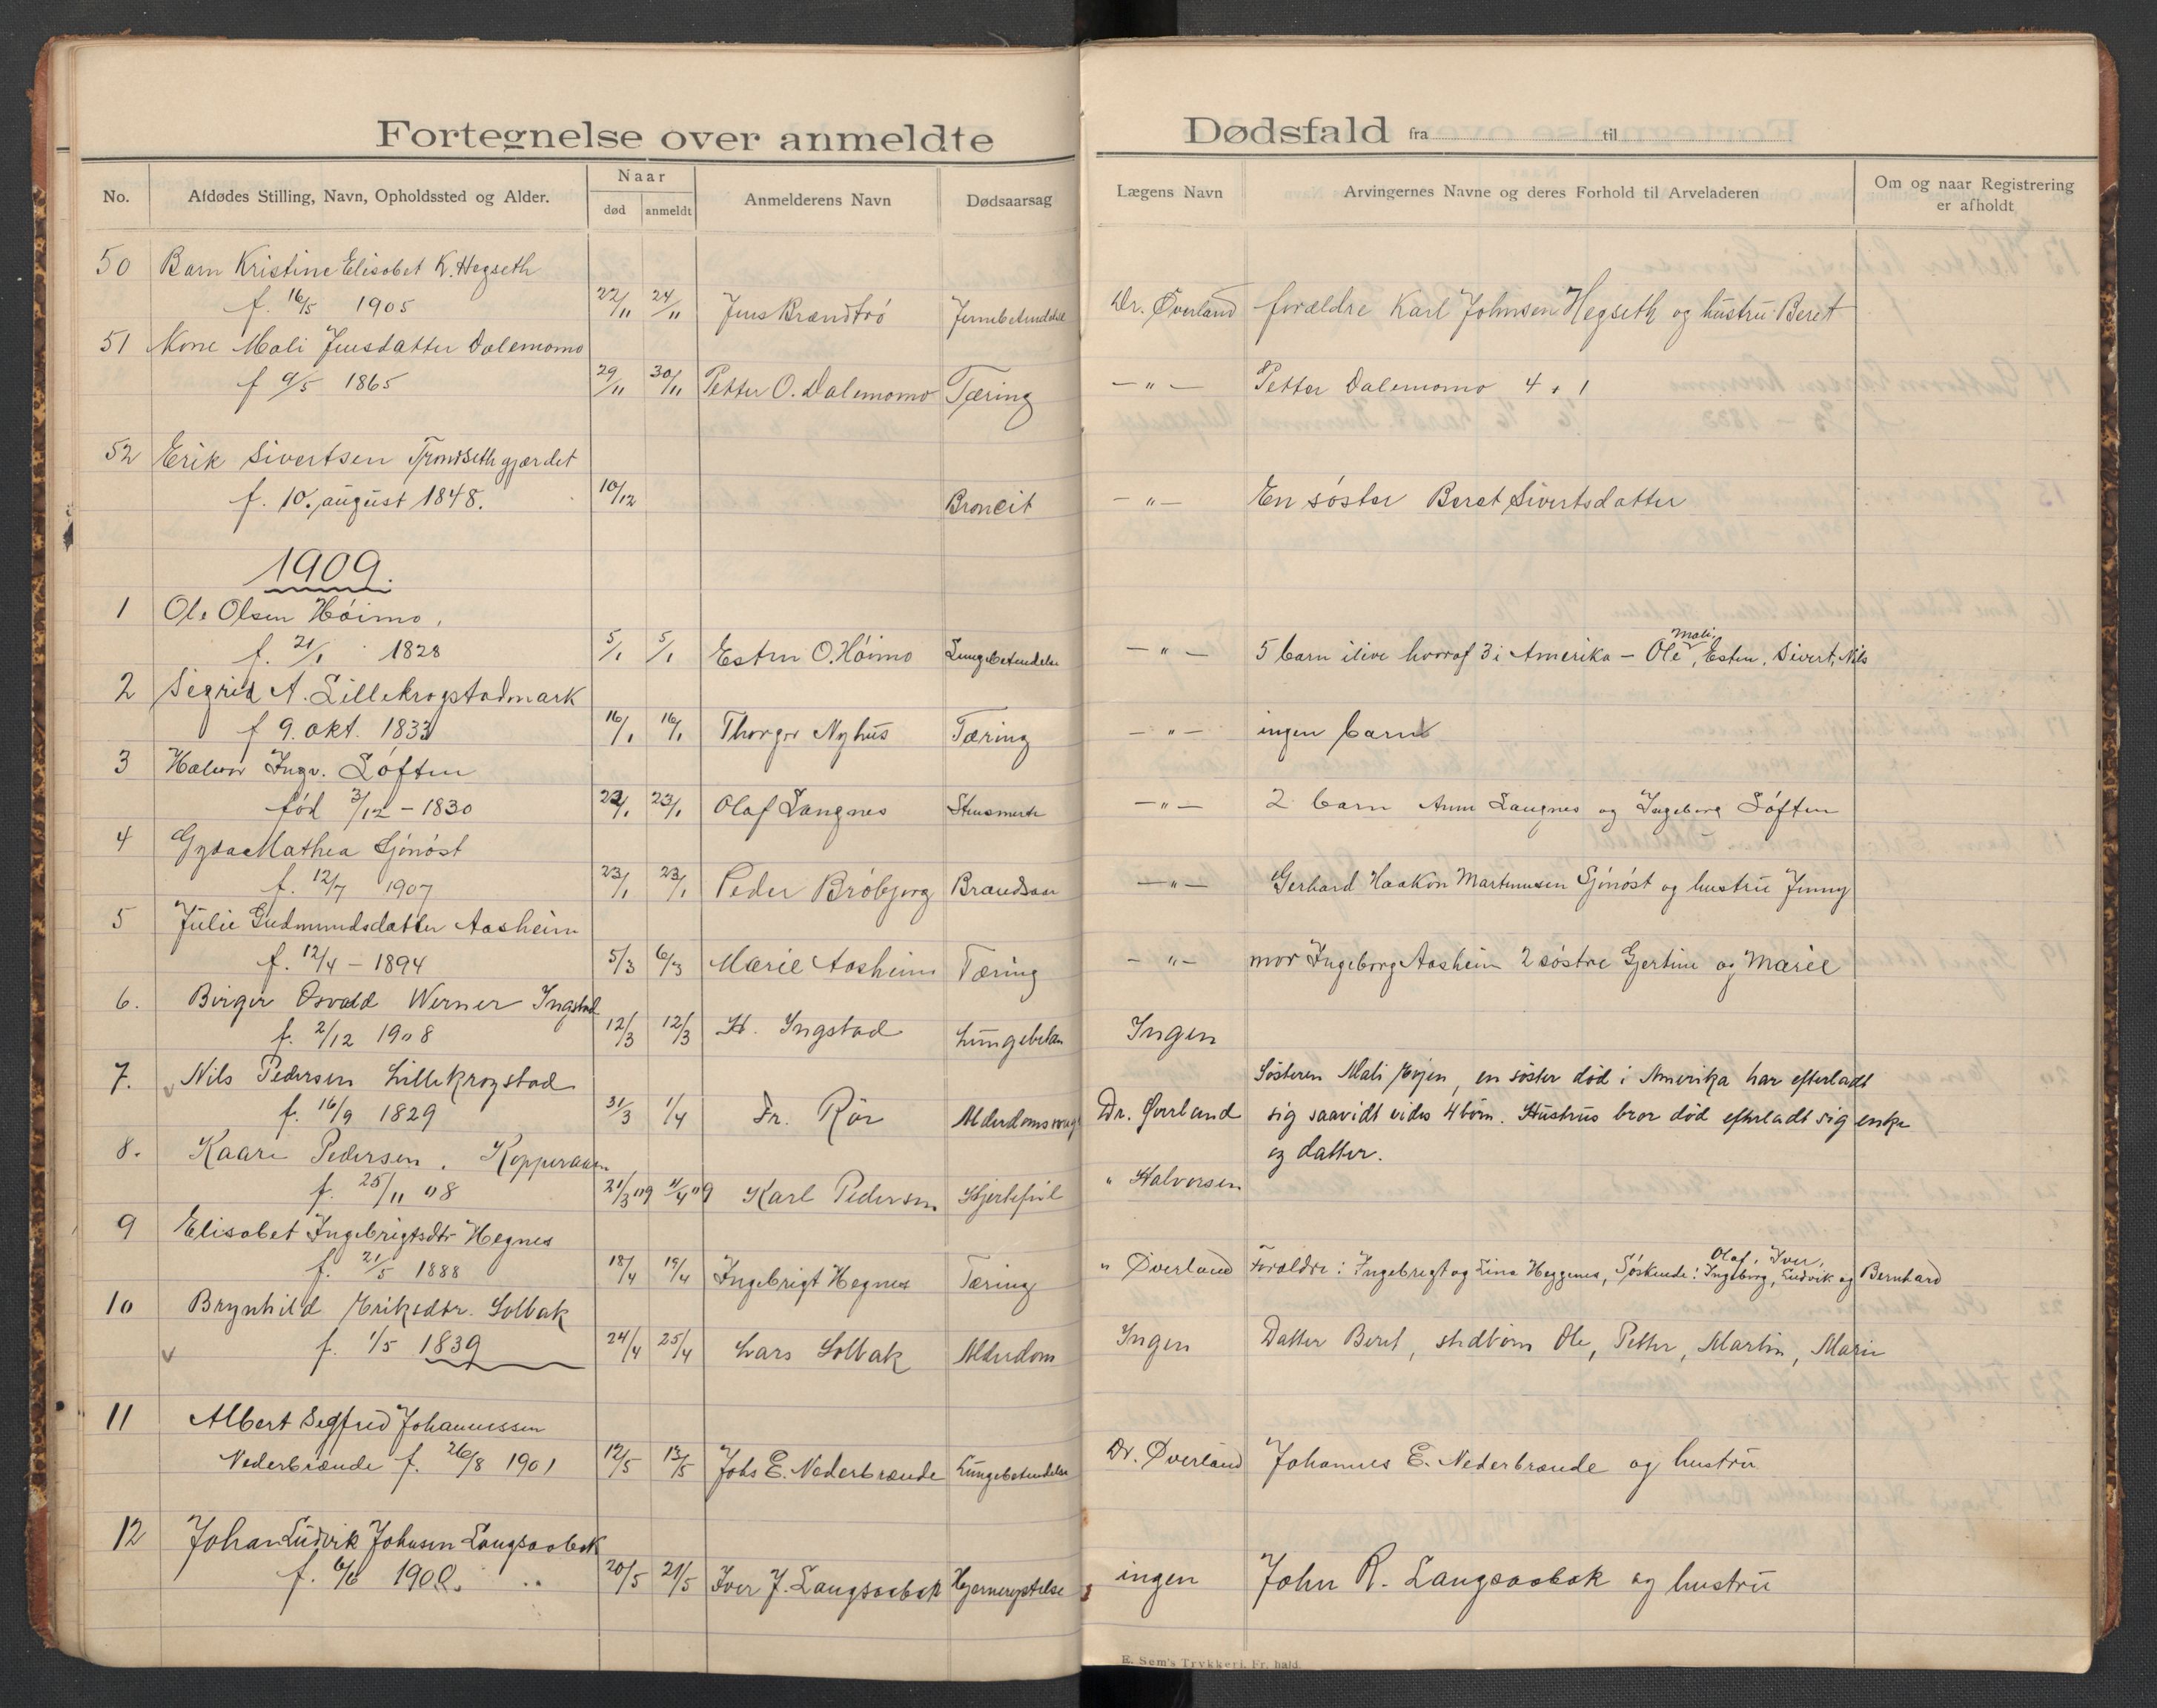 Fortegnelse over anmeldte Dødsfald fra til
No. Afdødes Stilling, Navn, Opholdssted og Alder. Naar død anmeldt Anmelderens Navn Dødsaarsag Lægens Navn Arvingernes Navne og deres Forhold til Arveladeren Om og naar Registrering er afholdt
50 Barn Kristine Elisabet K. Hegseth
f. 16/5 1905 22/11 24/11 Jens Brændtrö Dr. Øverland forældre Karl Johnsen Hegseth og hustru Beret
51 Kone Mali Jensdatter Dalemomo
f 9/5 1865 29/11 30/11 Petter O. Dalemomo Tæring —"— Petter Dalemomo 4 + 1
52 Erik Sivertsen Trondsethgjærdet
f. 10. august 1848. 10/12 Broncit —"— En søster Beret Sivertsdatter
1909.
1 Ole Olsen Höimo,
f. 21/1 1828 5/1 5/1 Esten O. Höimo Lungebetendelse —"— 5 barn ilive hvoraf 3 i Amerika — Ole, Mali, Esten, Sivert, Nils
2 Sigrid A. Lillekrogstadmark
f 9. okt. 1833 16/1 16/1 Thorger Nyhus Tæring —"— ingen barn
3 Halvor Ingv. Löften
född 3/12 – 1830 22/1 23/1 Olaf Langnes —"— 2 barn Anne Langnes og Ingeborg Löften
4 Gyda Mathea Sjönöst
f. 12/7 1907 23/1 23/1 Peder Bröbjerg Brandsaar —"— Gerhard Haakon Martinusen Sjönöst og hustru Jenny
5 Julie Gudmundsdatter Aasheim
f. 12/4 – 1894 5/3 6/3 Marie Aasheim Tæring —"— mor Ingeborg Aasheim 2 søstre Gjertine og Marie
6. Birger Osvald Werner Ingstad
f. 2/12 1908 12/3 12/3 H. Ingstad Lungebetæn Ingen
7. Nils Pedersen Lillekrogstad Søsteren Mali Evjen, en søster död i Amerika har efterladt
f. 16/9 1829 31/3 1/4 Fr. Rör Alderdomssvag Dr. Øverland sig saavidt vides 4 börn. Hustrus bror död efterladt sig enke
og datter.
8. Kaare Pedersen. Kopperaaen
f. 25/11 08 21/3 09 11/4 09 Karl Pedersen Hjertefeil " Halvorsen
9 Elisabet Ingebrigtsdtr Hegnes
f. 21/5 1888 18/4 19/4 Ingebrigt Hegnes Tæring " Øverland Forældre: Ingebrigt og Lina Heggenes, Søskende: Olaf, Iver, Ingeborg, Ludvik og Bernhard
10 Brynhild Eriksdtr. Solbak
f. 1/5 1839 24/4 25/4 Lars Solbak Alderdom Ingen Datter Beret, stedbörn Ole, Petter, Martin, Marie
11 Albert Segfred Johannessen
Nederbrænde f. 26/8 1901 12/5 13/5 Johs E. Nederbrænde Lungebetendelse Dr. Øverland Johannes E. Nederbrænde og hustru
12 Johan Ludvik Johnsen Langsaabak
f. 6/6 1900. 20/5 21/5 Iver J. Langsaabak Hjernerystelse ingen John R. Langsaabak og hustru
E. Sem's Trykkeri, Fr. hald.